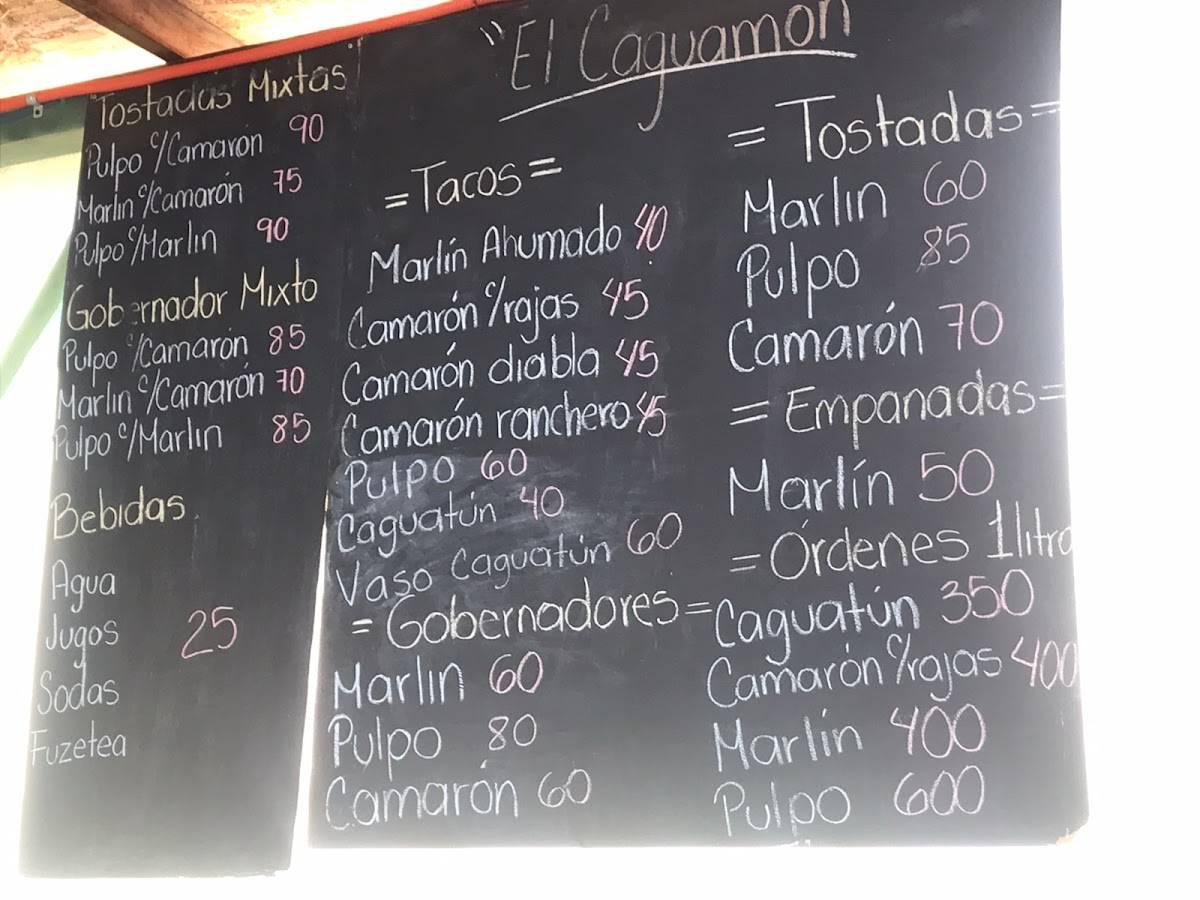 Tostadas Mixtas
Pulpo c/Camarón 90
Marlin c/Camarón 75
Pulpo c/Marlin 90
Gobernador Mixto
Pulpo c/Camarón 85
Marlin c/Camarón 70
Pulpo c/Marlin 85
Bebidas
Agua
Jugos 25
Sodas
Fuzetea
"El Caguamon
=Tacos=
Marlín Ahumado 40
Camarón c/rajas 45
Camarón diabla 45
Camarón ranchero 45
Pulpo 60
Caguatún 40
Vaso Caguatún 60
=Gobernadores=
Marlin 60
Pulpo 80
Camarón 60
=Tostadas=
Marlin 60
Pulpo 85
Camarón 70
=Empanadas=
Marlín 50
=Órdenes 1litro
Caguatún 350
Camarón c/rajas 400
Marlín 400
Pulpo 600